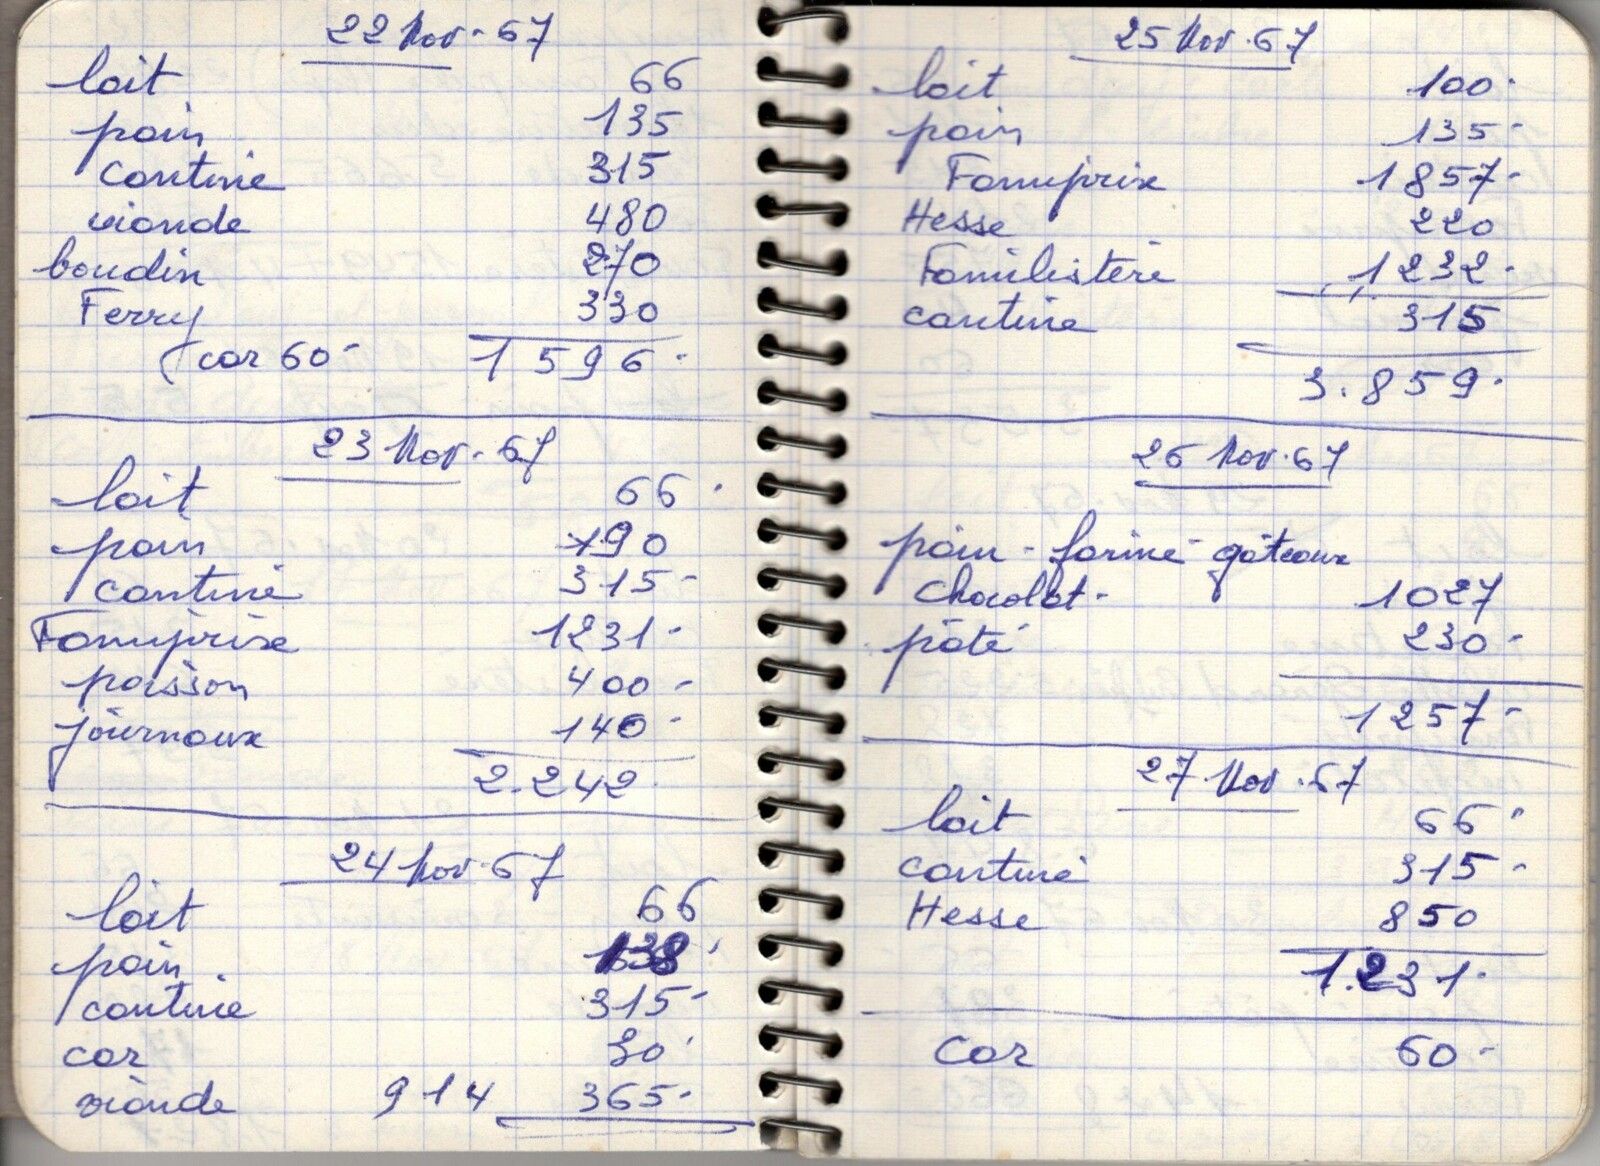 22 Nov. 67
lait 66
pain 135
cantine 315
viande 480
boudin 270
Ferry 330
(car 60- 1596.
23 Nov. 67
lait 66.
pain 190
cantine 315-
Famiprix 1231-
poisson 400-
journaux 140-
2.242.
24 Nov. 67
lait 66
pain 138.
cantine 315-
car 30.
viande 914 365.
25 Nov. 67
lait 100.
pain 135-
Famiprix 1857-
Hesse 220
Familistère 1232.
cantine 315
3.859.
26 Nov. 67
pain - farine gâteaux
Chocolat- 1027
pâté 230-
1257-
27 Nov. 67
lait 66.
cantine 315-
Hesse 850
1.231.
Car 60-